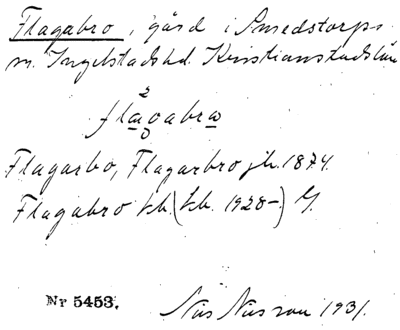 Flagabro, gård i Smedstorps
sn. Ingelstads hd. Kristianstads län
flagabra
Flagarbo, Flagarbro jb. 1874.
Flagabro tb. (tb. 1928-) G.
Nr 5453. Nils Nilsson 1931.